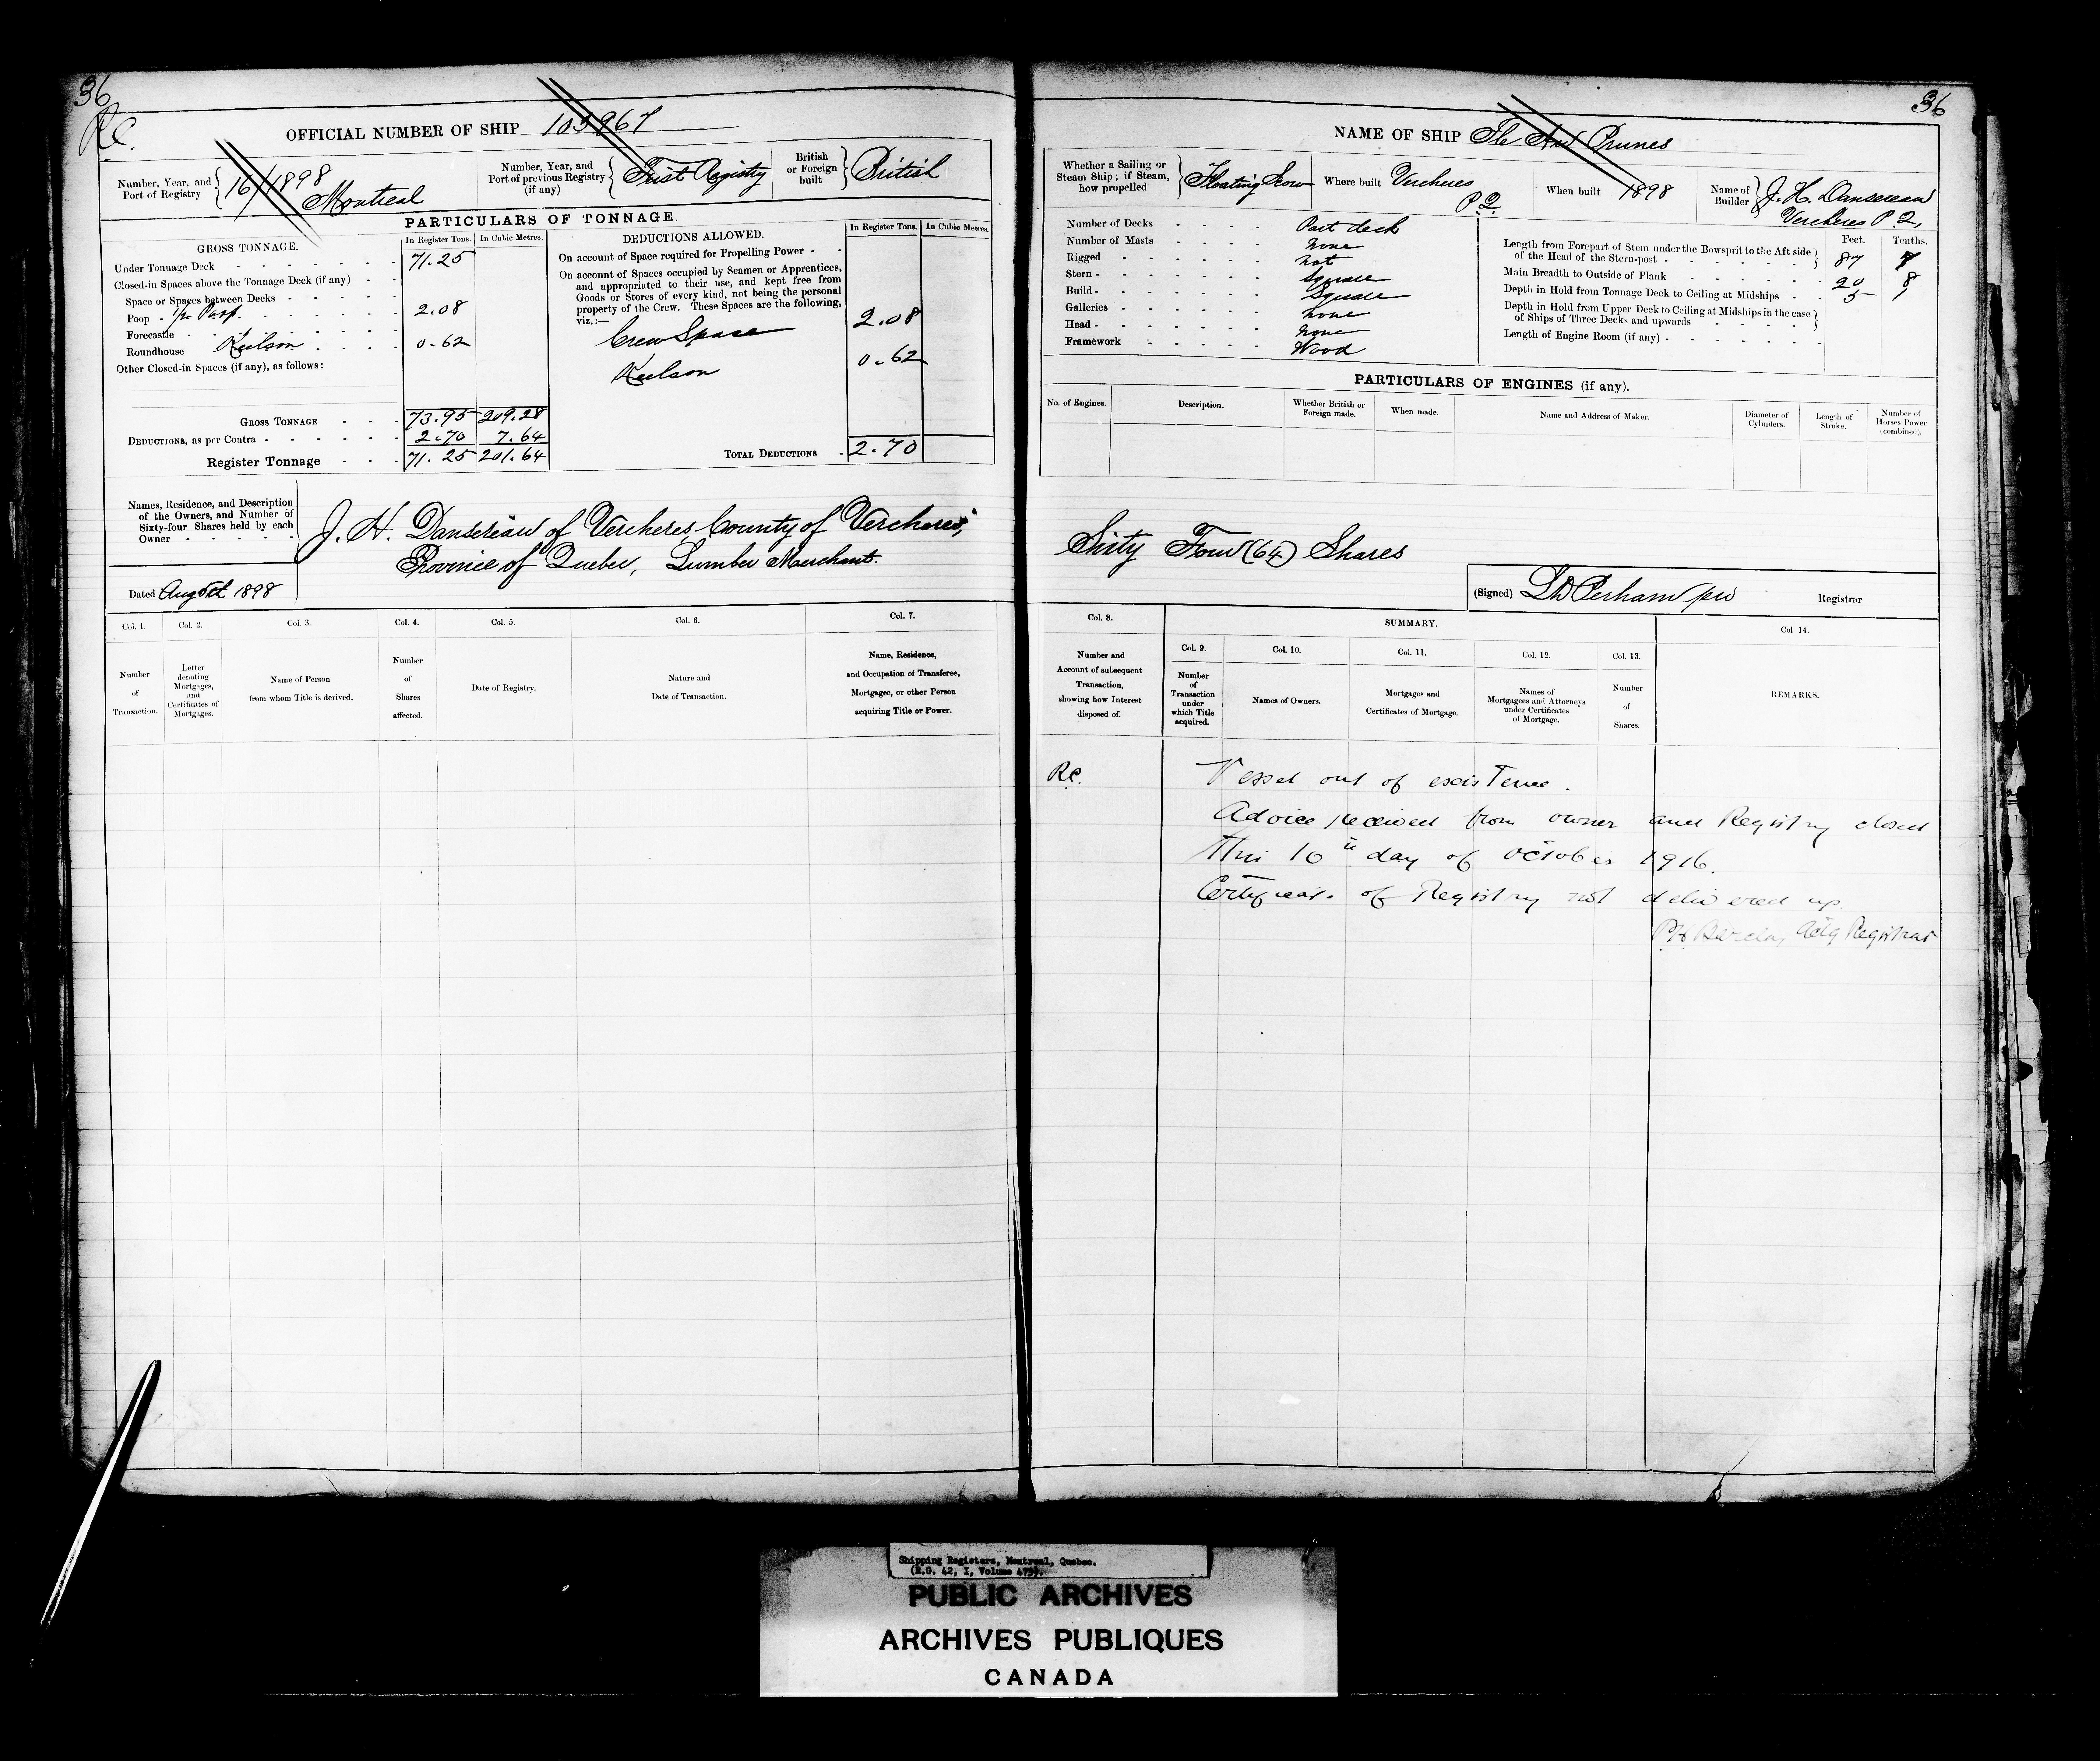 36
36
R.C.
OFFICIAL NUMBER OF SHIP 103967
Number, Year, and Port of Registry 16/1898 Montreal
Number, Year, and Port of previous Registry (if any) First Registry
British or Foreign built British
PARTICULARS OF TONNAGE.
GROSS TONNAGE.
In Register Tons. In Cubic Metres.
Under Tonnage Deck 71.25
Closed-in Spaces above the Tonnage Deck (if any)
Space or Spaces between Decks
Poop 1/2 Poop. 2.08
Forecastle
Roundhouse Keelson 0.62
Other Closed-in Spaces (if any), as follows:
GROSS TONNAGE 73.95 209.28
DEDUCTIONS, as per Contra 2.70 7.64
Register Tonnage 71.25 201.64
DEDUCTIONS ALLOWED.
In Register Tons. In Cubic Metres.
On account of Space required for Propelling Power
On account of Spaces occupied by Seamen or Apprentices,
and appropriated to their use, and kept free from
Goods or Stores of every kind, not being the personal
property of the Crew. These Spaces are the following,
viz.:—
Crew Space 2.08
Keelson 0.62
TOTAL DEDUCTIONS 2.70
NAME OF SHIP Prunes
Whether a Sailing or Steam Ship; if Steam, how propelled Floating Scow
Where built Vercheres P.Q.
When built 1898
Name of Builder J. H. Dansereau Vercheres P.Q,
Number of Decks Part deck
Number of Masts none
Rigged not
Stern Square
Build Square
Galleries none
Head none
Framework Wood
Feet. Tenths.
Length from Forepart of Stem under the Bowsprit to the Aft side
of the Head of the Stern-post 87 7
Main Breadth to Outside of Plank 20 8
Depth in Hold from Tonnage Deck to Ceiling at Midships 5 1
Depth in Hold from Upper Deck to Ceiling at Midships in the case
of Ships of Three Decks and upwards
Length of Engine Room (if any)
PARTICULARS OF ENGINES (if any).
No. of Engines.
Description.
Whether British or Foreign made.
When made.
Name and Address of Maker.
Diameter of Cylinders.
Length of Stroke.
Number of Horses Power (combined).
Names, Residence, and Description
of the Owners, and Number of
Sixty-four Shares held by each
Owner
J. H. Dansereau of Vercheres, County of Vercheres,
Province of Quebec, Lumber Merchant.
Sixty Four (64) Shares
Dated 1898
(Signed) Registrar
Col. 1.
Number
of
Transaction.
Col. 2.
Letter
denoting
Mortgages,
and
Certificates of
Mortgages.
Col. 3.
Name of Person
from whom Title is derived.
Col. 4.
Number
of
Shares
affected.
Col. 5.
Date of Registry.
Col. 6.
Nature and
Date of Transaction.
Col. 7.
Name, Residence,
and Occupation of Transferee,
Mortgagee, or other Person
acquiring Title or Power.
Col. 8.
Number and
Account of subsequent
Transaction,
showing how Interest
disposed of.
SUMMARY.
Col. 9.
Number
of
Transaction
under
which Title
acquired.
Col. 10.
Names of Owners.
Col. 11.
Mortgages and
Certificates of Mortgage.
Col. 12.
Names of
Mortgagees and Attorneys
under Certificates
of Mortgage.
Col. 13.
Number
of
Shares.
Col 14.
REMARKS.
R.C. Vessel out of existence.
Advice received from owner and Registry closed
this 10th day of October 1916.
Certificate of Registry not delivered up.
Barclay Actg Registrar
Shipping Registers, Montreal, Quebec.
(R.G. 42, I, Volume 479).
PUBLIC ARCHIVES
ARCHIVES PUBLIQUES
CANADA